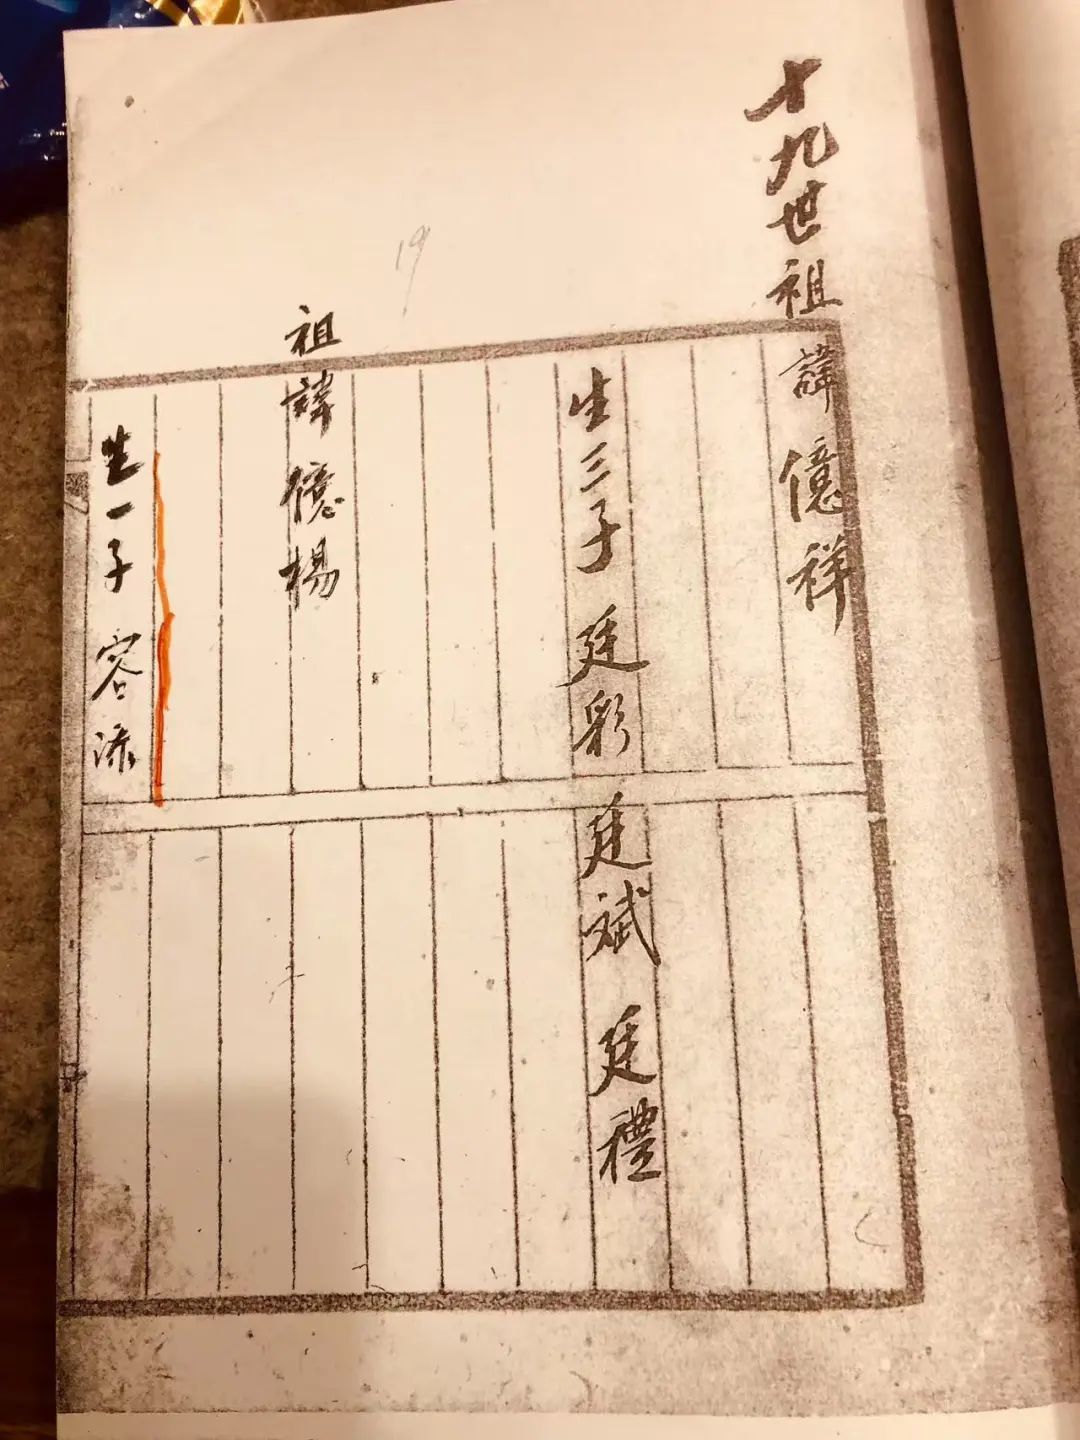 十九世祖諱億祥
生三子廷彩廷斌廷禮
19
祖諱億楊
生一子容添